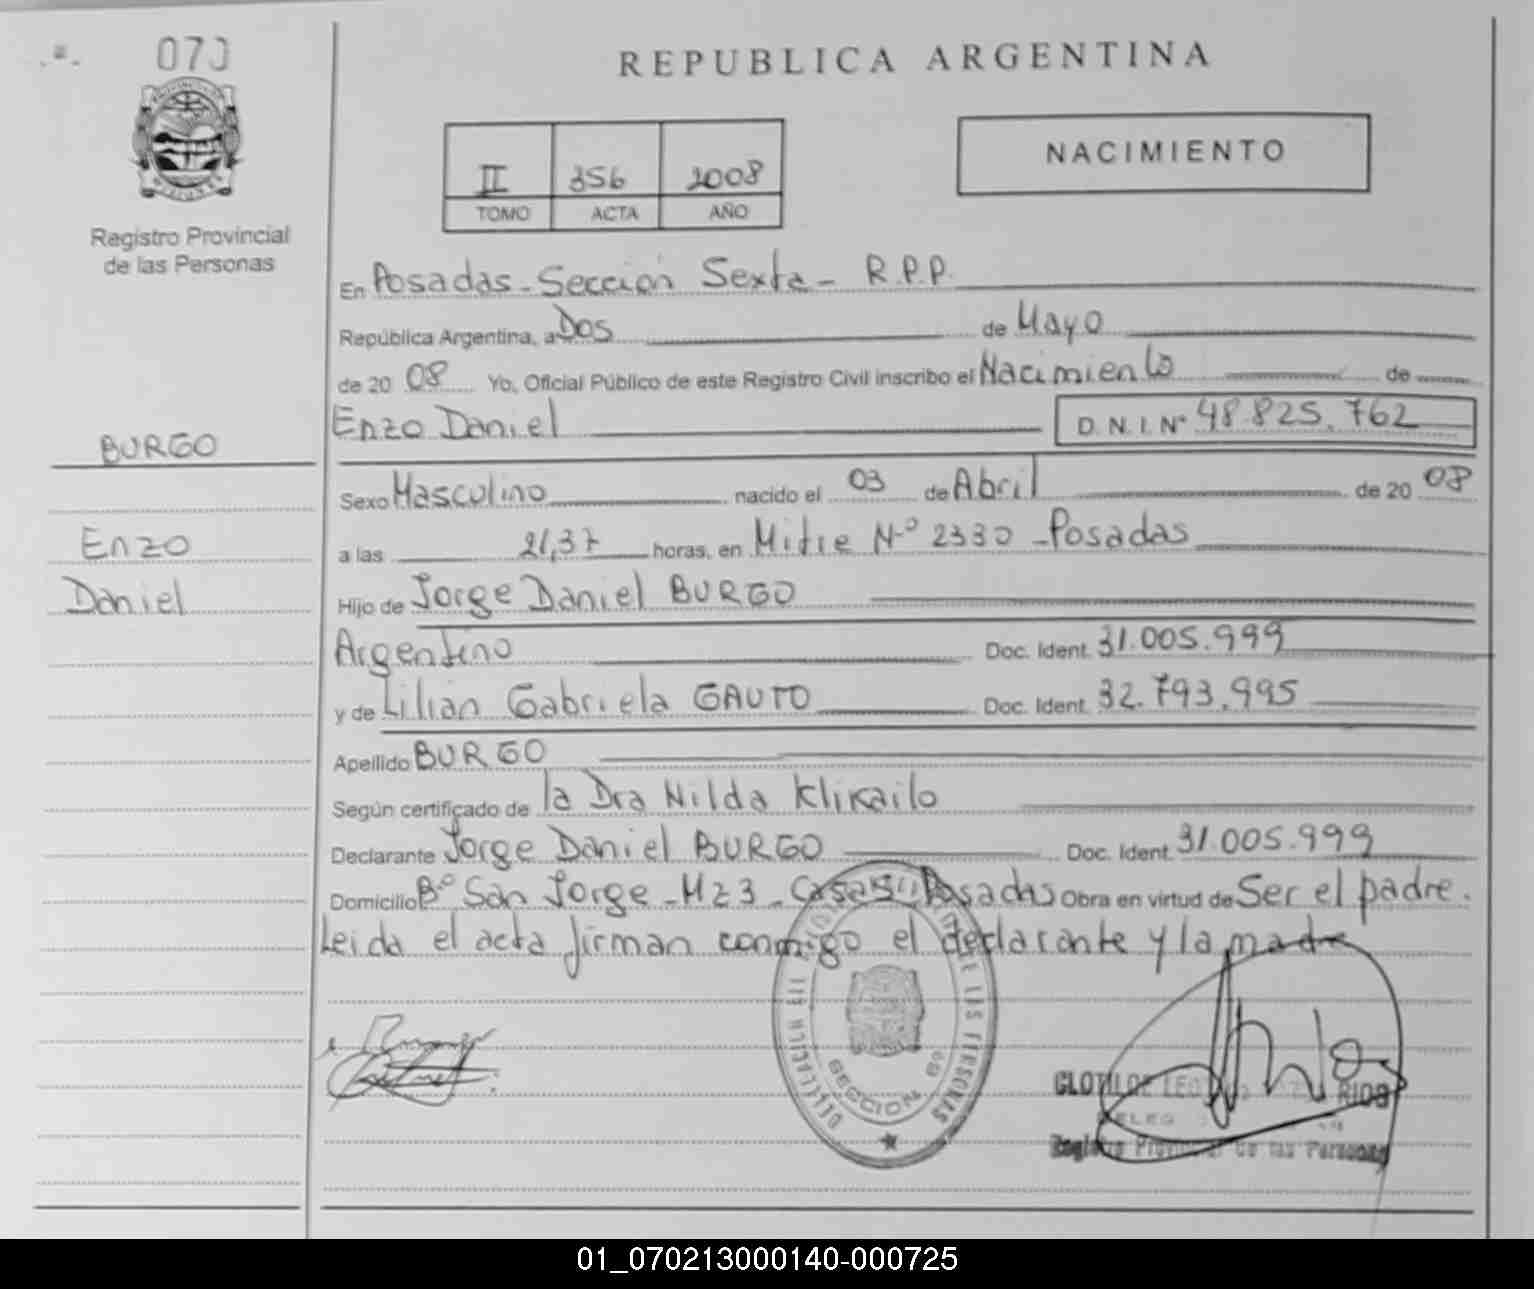 070
Registro Provincial
de las Personas
BURGO
Enzo
Daniel
REPUBLICA ARGENTINA
II 356 2008
TOMO ACTA AÑO
NACIMIENTO
En Posadas - Sección Sexta - R.P.P.
República Argentina, a Dos de Mayo
de 20 08 Yo, Oficial Público de este Registro Civil inscribo el Nacimiento de
Enzo Daniel D. N. I. Nº 48.825.762
Sexo Masculino nacido el 03 de Abril de 20 08
a las 21,37 horas, en Mitre Nº 2330 - Posadas
Hijo de Jorge Daniel BURGO
Argentino Doc. Ident. 31.005.999
y de Lilian Gabriela GAUTO Doc. Ident. 32.793.995
Apellido BURGO
Según certificado de la Dra Nilda Klikailo
Declarante Jorge Daniel BURGO Doc. Ident. 31.005.999
Domicilio Bº San Jorge - Mz 3 - Posadas Obra en virtud de Ser el padre.
Leida el acta firman conmigo el declarante y la madre
DE LAS PERSONAS
SECCION 6º
CLOTILDE RIOS
Registro Provincial de las Personas
01_070213000140-000725